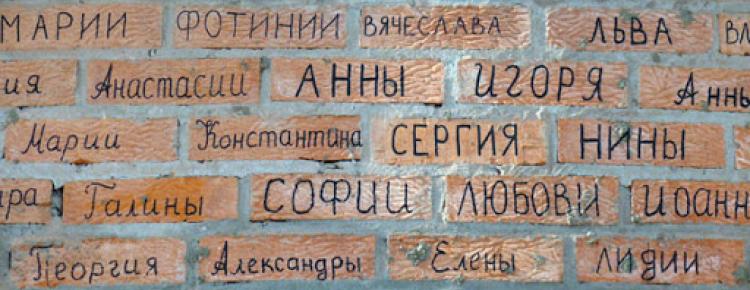 МАРИИ ФОТИНИИ ВЯЧЕСЛАВА ЛЬВА ВЛ
ия Анастасии АННЫ ИГОРЯ Анны
Марии Константина СЕРГИЯ НИНЫ
ара Галины СОФИИ ЛЮБОВИ ИОАНН
Георгия Александры Елены ЛИДИИ